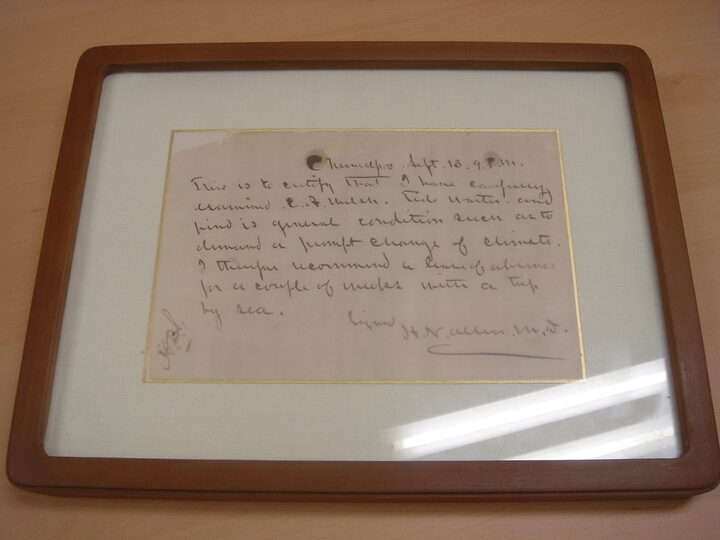 Chemulpo. Sept. 13. 9. P.M.
This is to certify that I have carefully
examined C. A. Welch. Tide Waiter and
find is general condition such as to
demand a prompt change of climate.
I therefore recommend a leave of absence
for a couple of weeks with a trip
by sea.
Signed H. N. Allen. M. D.